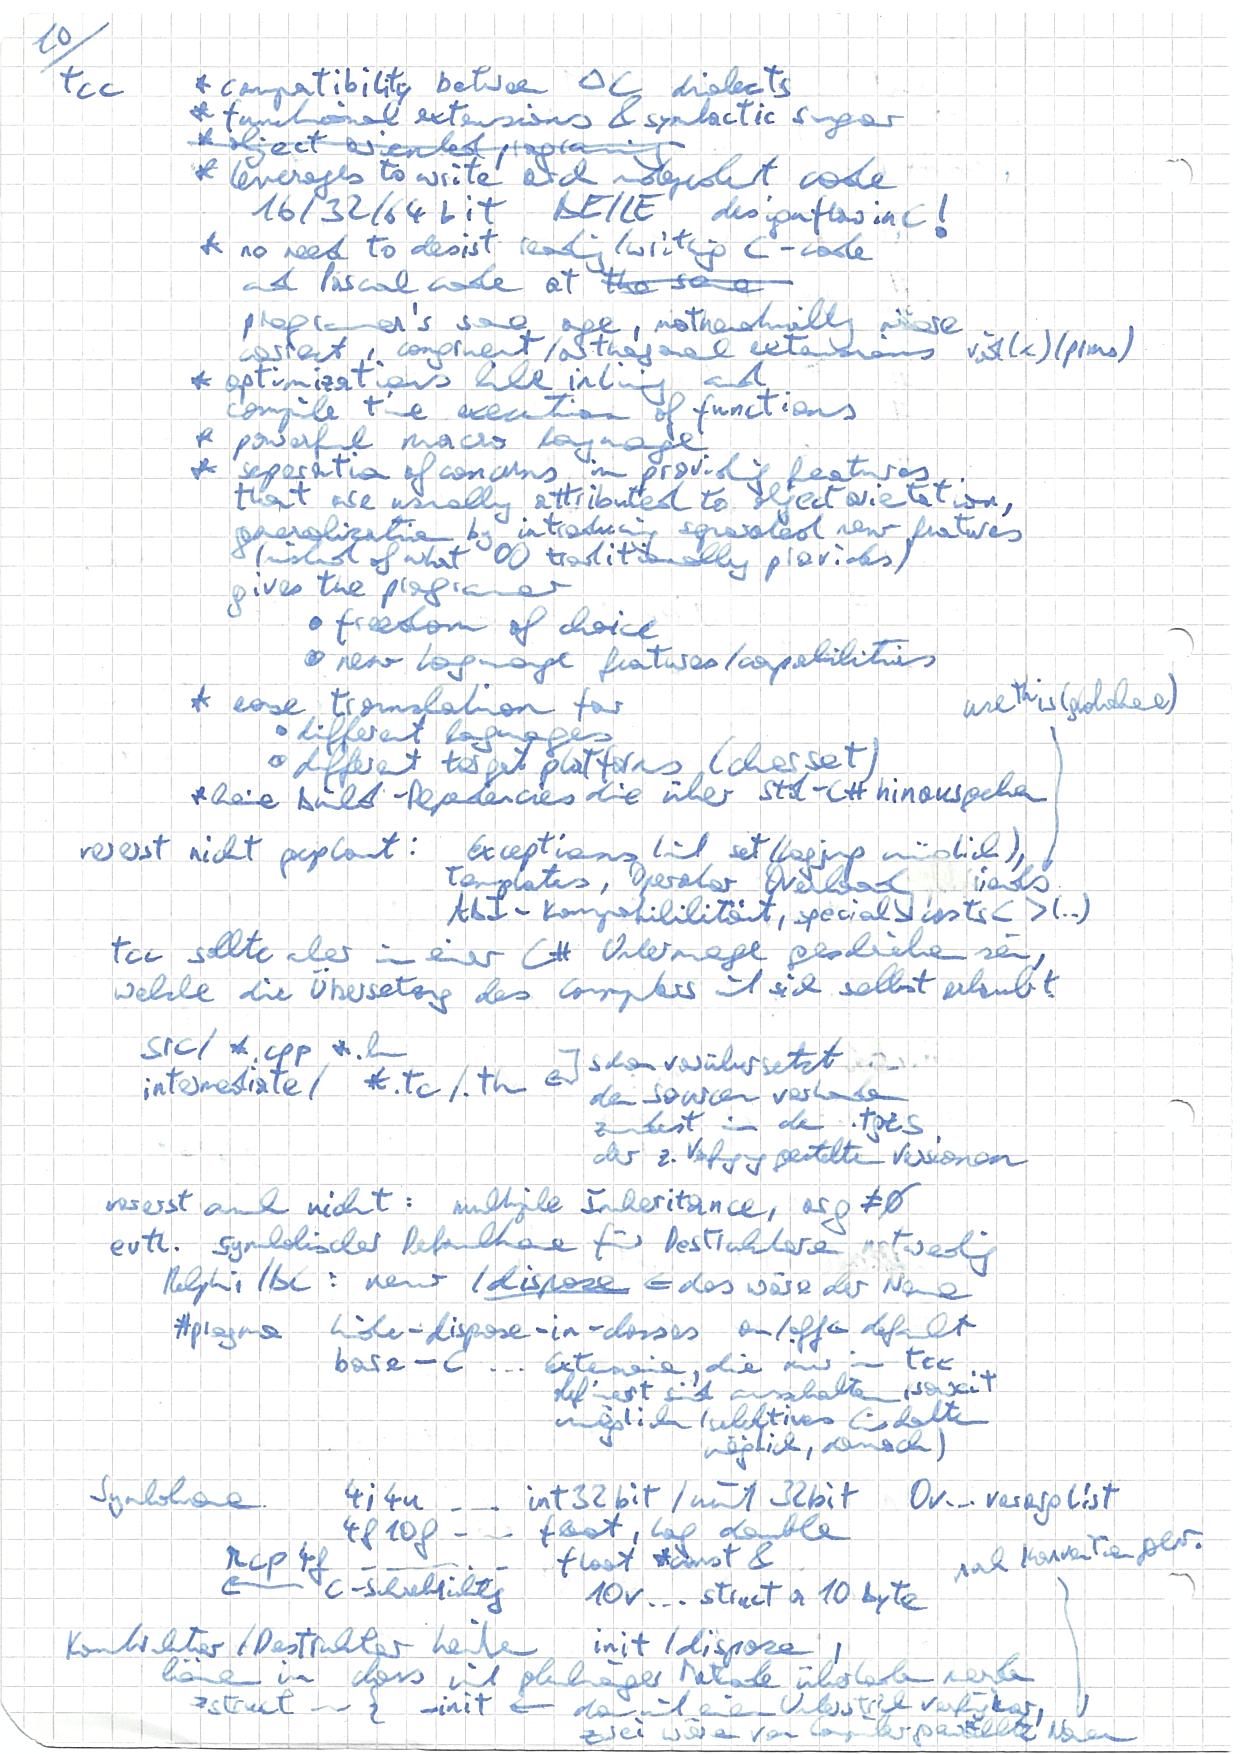 10/
tcc * compatibility between ΔC dialects
* functional extensions & syntactic sugar
* object oriented programing
* leverages to write arch independent code
16/32/64 bit BE/LE designflow in C!
* no need to desist reading/writing C-code
and Pascal code at the same
programer's same age, mathematically more
correct, congruent/orthogonal extensions void(x)(prms)
* optimizations like inlining and
compile time execution of functions
* powerful macro language
* separation of concerns in providing features
that are usually attributed to object orientation,
generalization by introducing separated new features
(instead of what OO traditionally provides)
gives the programer
• freedom of choice
• new language features/capabilities
* ease translation for use this (globalee)
• different languages
• different target platforms (charset)
* keine Build-Dependencies die über Std-C++ hinausgehen
vorerst nicht geplant: Exceptions (mit set/longjmp möglich),
Templates, Operator Overload,
ABI-Kompatibilität, special casts < >(..)
tcc sollte aber in einer C++ Untermenge geschrieben sein,
welche die Übersetzung des Compilers mit sich selbst erlaubt.
src/ *.cpp *.h
intermediate/ *.tc/.th ⇐ schon vorübersetzt
den Sourcen vorhanden
zumindest in den .tgzs
der z. Verfügung gestellten Versionen
vorerst auch nicht: multiple Inheritance, org ≠ 0
evtl. symbolischer Defaultname für Destruktoren notwendig
Delphi/BC: new /dispose ⇐ das wäre der Name
#pragma hide-dispose-in-classes on/off ← default
base-C ... Extensions, die nur in tcc
definiert sind ausschalten, soweit
möglich (selektives Einschalten
möglich, danach)
Symbolname 4i4u ... int 32bit / uint 32bit 0v... vararglist
4f10f ... float, long double
rcp4f ... float *const & nach Konvention
← C-Schreibrichtung 10v... struct a 10 byte
Konstruktor/Destruktor heißen init/dispose,
können in class mit gleichnamiger Methode überladen werden
zstruct { _init ← damit einen Unterstrich verfügbar,
zwei wären von Compiler Namen